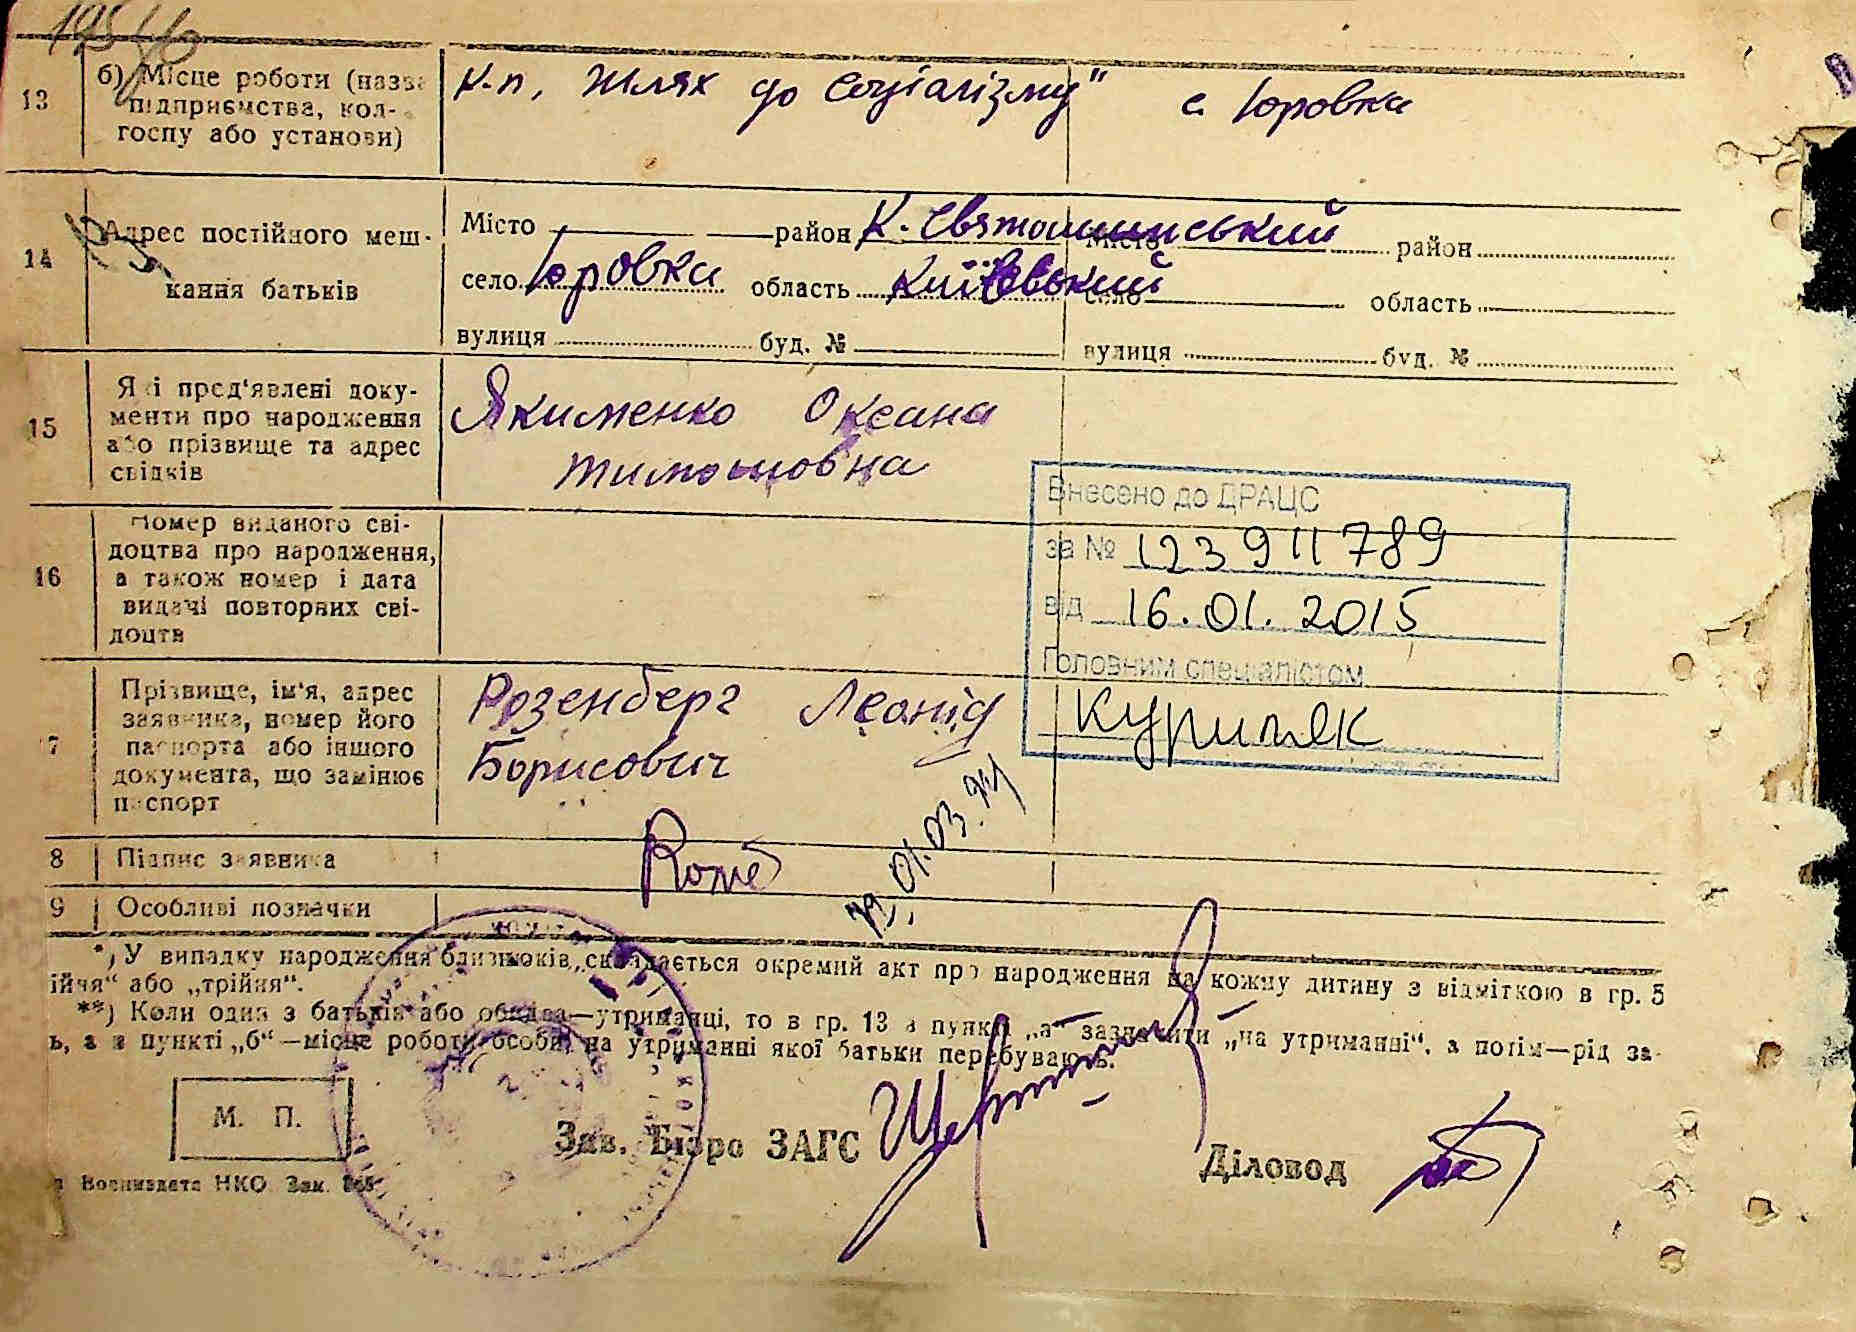 13 б) Місце роботи (назва
підприємства, кол-
госпу або установи)
к.п. Шлях до соціалізму" с Юровка
14 Адрес постійного меш-
кання батьків
Місто район К. Святошинський Місто район
село Юровка область Київський село область
вулиця буд. № вулиця буд. №
15 Які пред'явлені доку-
менти про народження
або прізвище та адрес
свідків
Якименко Оксана
Тимошовна
16 Номер виданого сві-
доцтва про народження,
а також номер і дата
видачі повторних сві-
доцтв
Внесено до ДРАЦС
за № 123911789
від 16.01.2015
Головним спеціалістом
Куриляк
7 Прізвище, ім'я, адрес
заявника, номер його
паспорта або іншого
документа, що замінює
паспорт
Розенберг Леонід
Борисович
01.03.
8 Підпис заявника
9 Особливі позначки
*) У випадку народження близнюків, складається окремий акт про народження на кожну дитину з відміткою в гр. 5
ійня“ або „трійня“.
**) Коли один з батьків або обидва—утриманці, то в гр. 13 в пункті „а“ зазначити „на утриманні“, а потім—рід за-
ь, а в пункті „б“—місце роботи особи, на утриманні якої батьки перебувають.
М. П.
Зав. Бюро ЗАГС
Діловод
Воениздата НКО Зам.